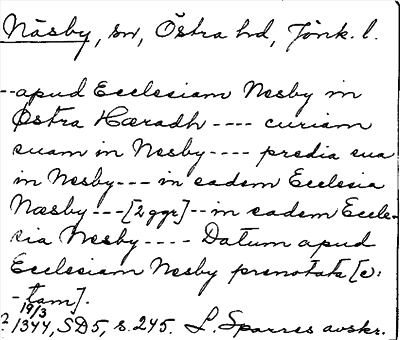 Näsby, sn, Östra hd, Jönk. l.
--apud Ecclesiam Nesby in
Østra Hæradh ---- curiam
suam in Nesby ---- predia sua
in Nesby --- in eadem Ecclesia
Næsby --- [2 ggr] -- in eadem Eccle-
sia Nesby ---- Datum apud
Ecclesiam Nesby prenotatẹ [ɔ:
-tam].
? 19/3 1344, SD5, s. 245. L. Sparres avskr.